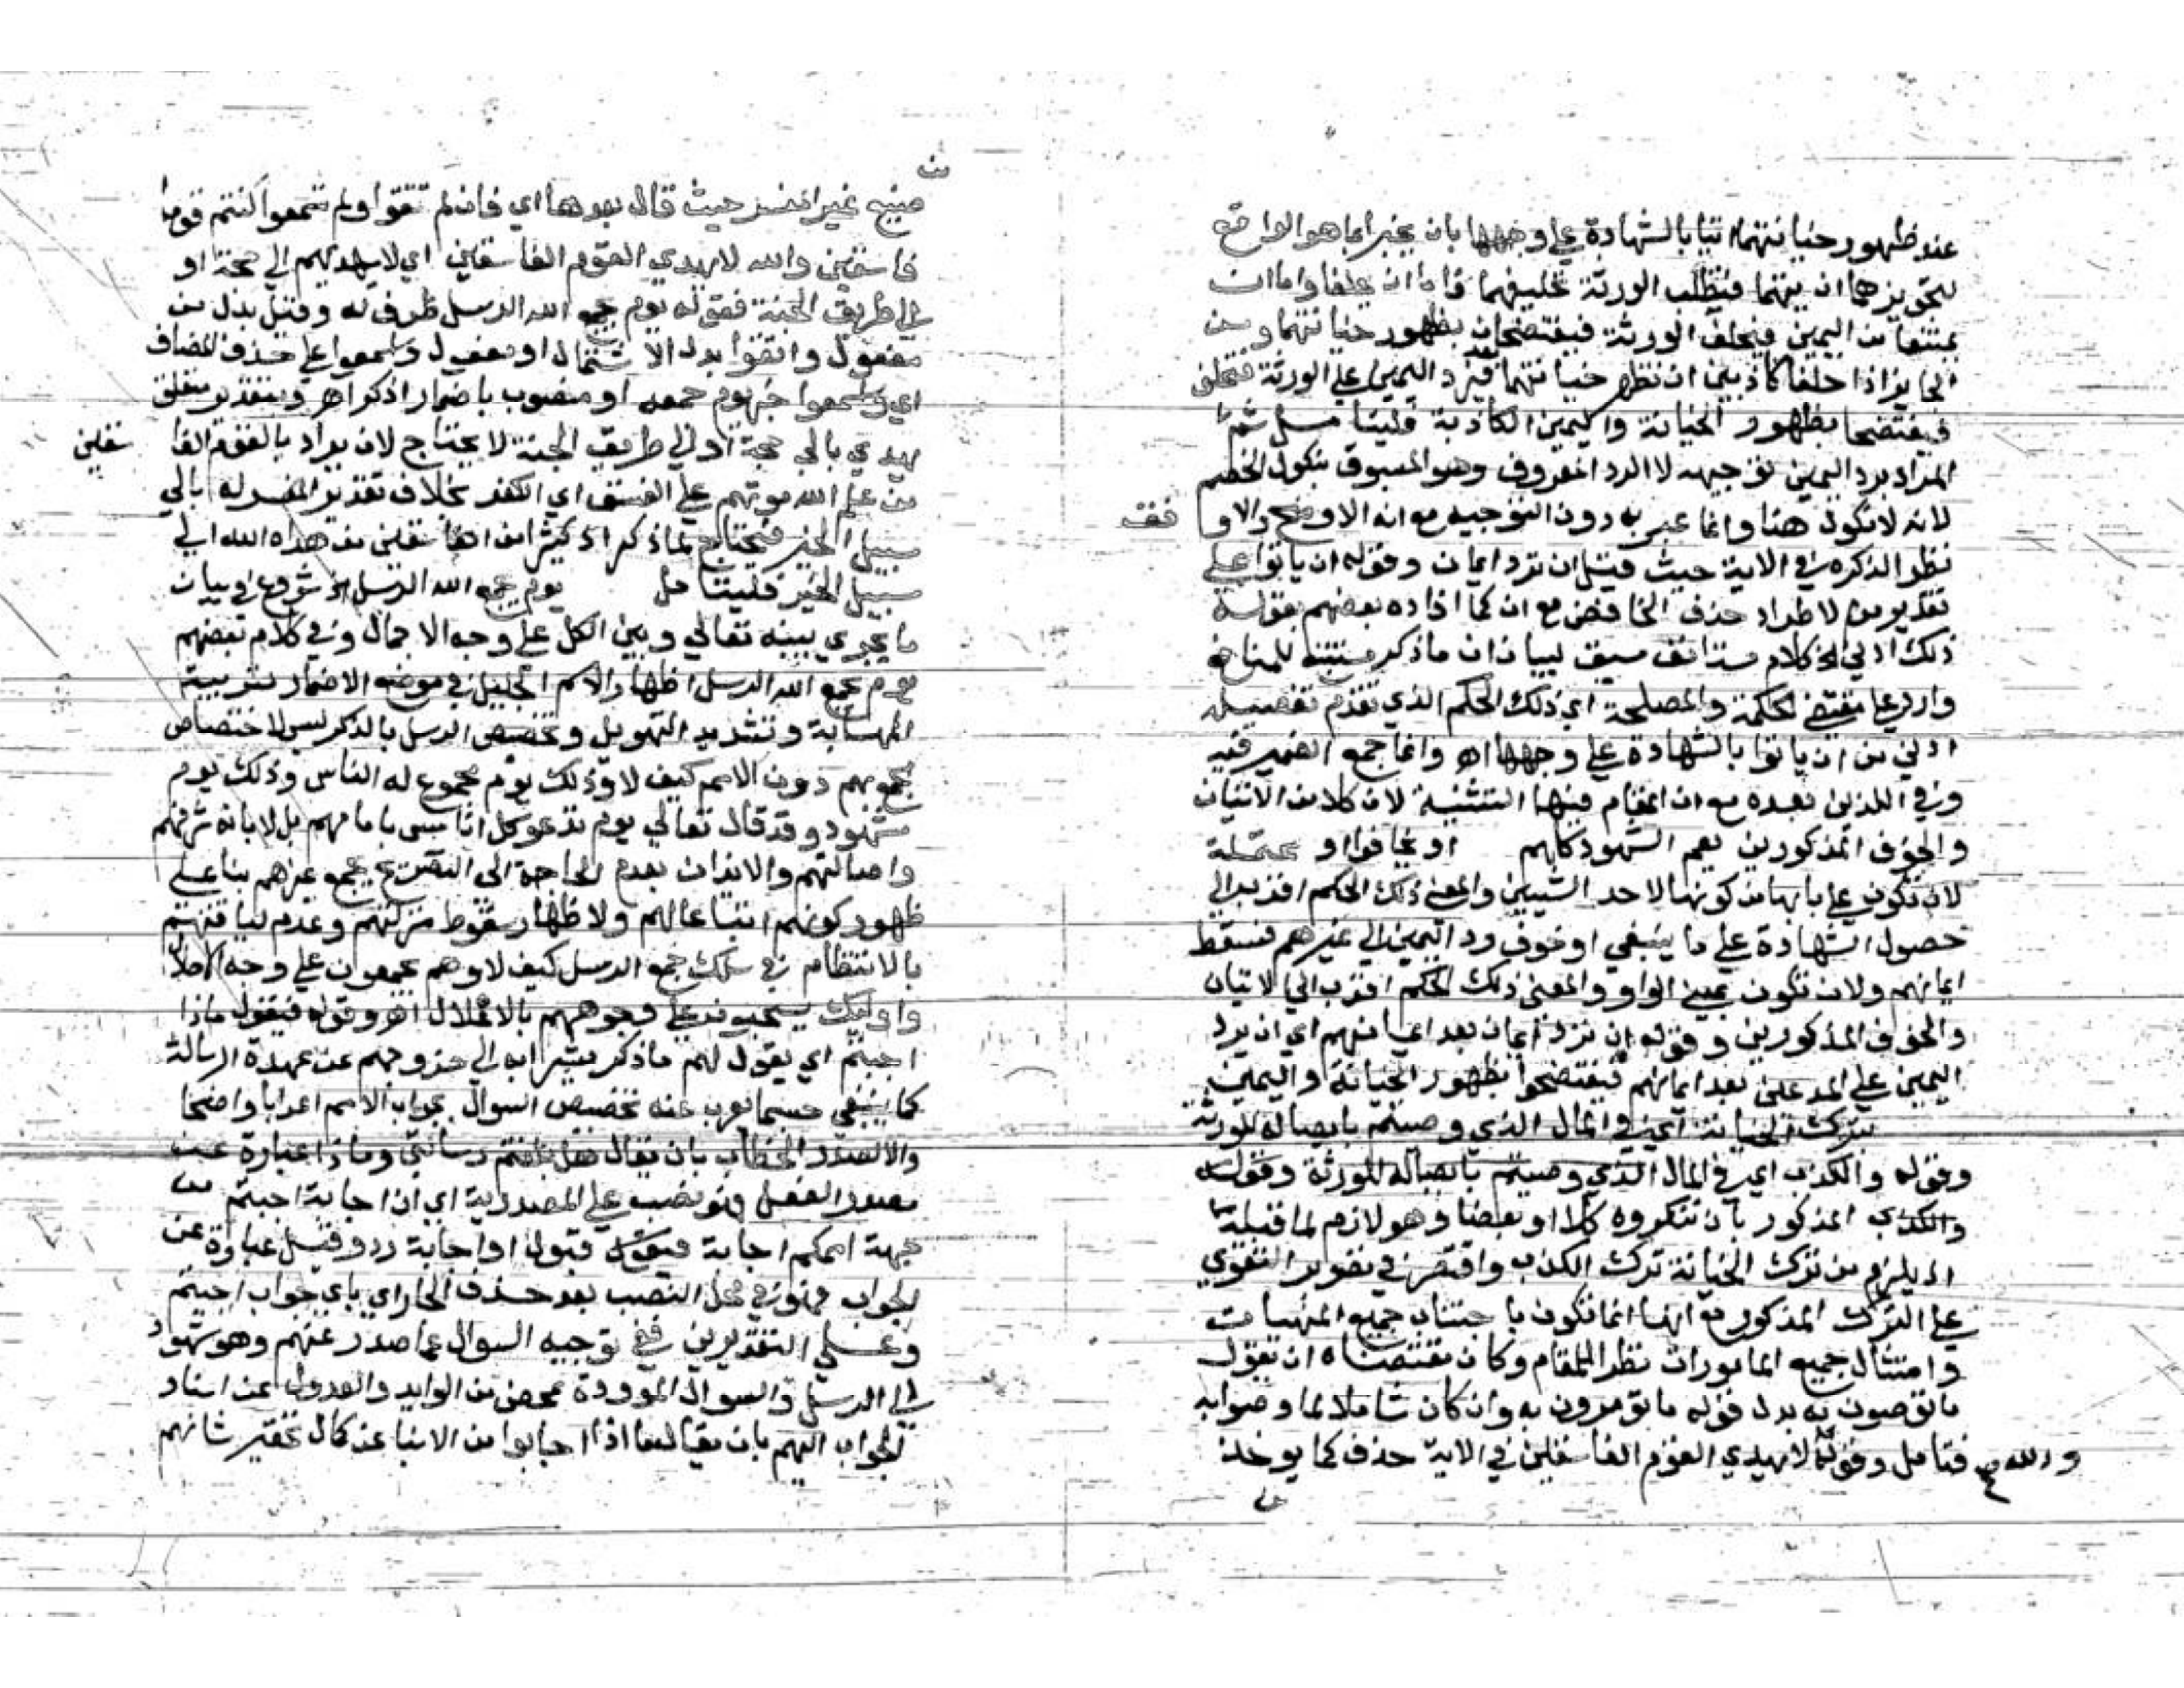 عند ظهور خيانتهما اتيا بالشهادة على وجهها بان يخبرا بما هو الواقع
لتجويزهما ان يتهما فتطلب الورثة تحليفهما فاما ان يحلفا واما ان
يمتنعا من اليمين فيحلف الورثة فيفتضحان بظهور خيانتهما ومن
الجايز اذا حلفا كاذبين ان تظهر خيانتهما بعد فترد اليمين على الورثة فتحلف
فيفتضحا بظهور الخيانة واليمين الكاذبة فليتامل ثم
المراد برد اليمين توجيهه لا الرد المعروف وهو المسبوق بنكول الخصم
لانه لا نكول هنا وانما عبر به دون التوجيه مع انه الاوضح والاوفق
نظرا لذكره في الاية حيث قيل ان ترد ايمان وقوله ان ياتوا على
تقدير من لاطراد حذف الخافض مع ان كما افاده بعضهم بقوله
ذلك ادنى الخ كلام مستانف سيق لبيان ان ما ذكر مستتبع للمنافع
وارد على مقتضى الحكمة والمصلحة اي ذلك الحكم الذي تقدم تفصيله
ادنى من ان ياتوا بالشهادة على وجهها اهـ وانما جمع الضمير فيه
وفي اللذين بعده مع ان المقام فيها التثنية لان كلا من الاتيان
والخوف المذكورين يعم الشهود كلهم او يخافوا او محتملة
لان تكون على بابها من كونها لاحد الشيين والمعنى ذلك الحكم اقرب الى
حصول الشهادة على ما ينبغي او خوف رد اليمين الى غيرهم فتسقط
ايمانهم ولان تكون بمعنى الواو والمعنى ذلك الحكم اقرب الى الاتيان
والخوف المذكورين وقوله ان ترد ايمان بعد ايمانهم اي ان يرد
اليمين على المدعين بعد ايمانهم فيفتضحوا بظهور الخيانة واليمين
بترك الخيانة اي في المال الذي وصيتم بايصاله للورثة
وقوله والكذب اي في المال الذي وصيتم بايصاله للورثة وقوله
والكذب المذكور بان تنكروه كلا او بعضا وهو لازم لما قبله
اذ يلزم من ترك الخيانة ترك الكذب واقتصر في تفوير التقوى
على الترك المذكور مع انها انما تكون باجتناب جميع المنهيات
وامتثال جميع المامورات نظرا للمقام وكان مقتضاه ان يقول
ما توصون به بدل قوله ما تومرون به وان كان شاملا لما وصوا به
فتامل وقوله والله لا يهدي القوم الفاسقين في الاية حذف كما يوخذ
من
صنيع غير المفسر حيث قال بعدهما اي فان لم تتقوا ولم تسمعوا كنتم قوما
فاسقين والله لا يهدي القوم الفاسقين اي لا يهديهم الى حجة او
الى طريق الجنة فقوله يوم يجمع الله الرسل ظرف له وقيل بدل من
مفعول واتقوا بدل الاشتمال او مفعول واسمعوا على حذف المضاف
اي واسمعوا خبر يوم جمعه او منصوب باضمار اذكر اهـ وبتقدير متعلق
يهدي بالى حجة او الى طريق الجنة لا يحتاج لان يراد بالقوم الفاسقين
من علم الله موتهم على الفسق اي الكفر بخلاف تقدير المفسر له بالى
سبيل الخير فيحتاج لما ذكر اذ كثير من الفاسقين من هداه الله الى
سبيل الخير فليتامل يوم يجمع الله الرسل الخ شروع في بيان
ما يجري بينه تعالى وبين الكل على وجه الاجمال وفي كلام بعضهم
يوم يجمع الله الرسل اظهار الاسم الجليل في موضع الاضمار لتربية
المهابة وتشديد التهويل وتخصيص الرسل بالذكر ليس لاختصاص
بجمعهم دون الامم كيف لا وذلك يوم مجموع له الناس وذلك يوم
مشهود وقد قال تعالى يوم ندعو كل اناس بامامهم بل لابانة شرفهم
واصالتهم والايذان بعدم الحاجة الى التصريح بجمع غيرهم بنا على
ظهور كونهم اتباعا لهم ولاظهار سقوط منزلتهم وعدم لياقتهم
بالانتظام في سلك جمع الرسل كيف لا وهم يجمعون على وجه الاجلال
واوليك يسحبون على وجوههم بالاغلال اهـ وقوله فيقول ماذا
اجبتم اي يقول لهم ما ذكر مشيرا به الى خروجهم عن عهدة الرسالة
كما ينبغي حسبما يعرب عنه تخصيص السوال بجواب الامم اعرابا واضحا
والا لصدر الخطاب بان يقال هل بلغتم رسالتي وماذا عبارة عن
مصدر الفعل فهو نصب على المصدرية اي اي اجابة اجبتم من
جهة اممكم اجابة قبول او اجابة رد وقيل عبارة عن
الجواب فهو في محل النصب بعد حذف الجار اي باي جواب اجبتم
وعلى التقديرين ففي توجيه السوال عما صدر عنهم وهم شهود
الى الرسل والسوال الموودة بمحضر من الوايد والعدول عن اسناد
الجواب اليهم بان يقال ماذا اجابوا من الانباء عن كمال تحقير شانهم